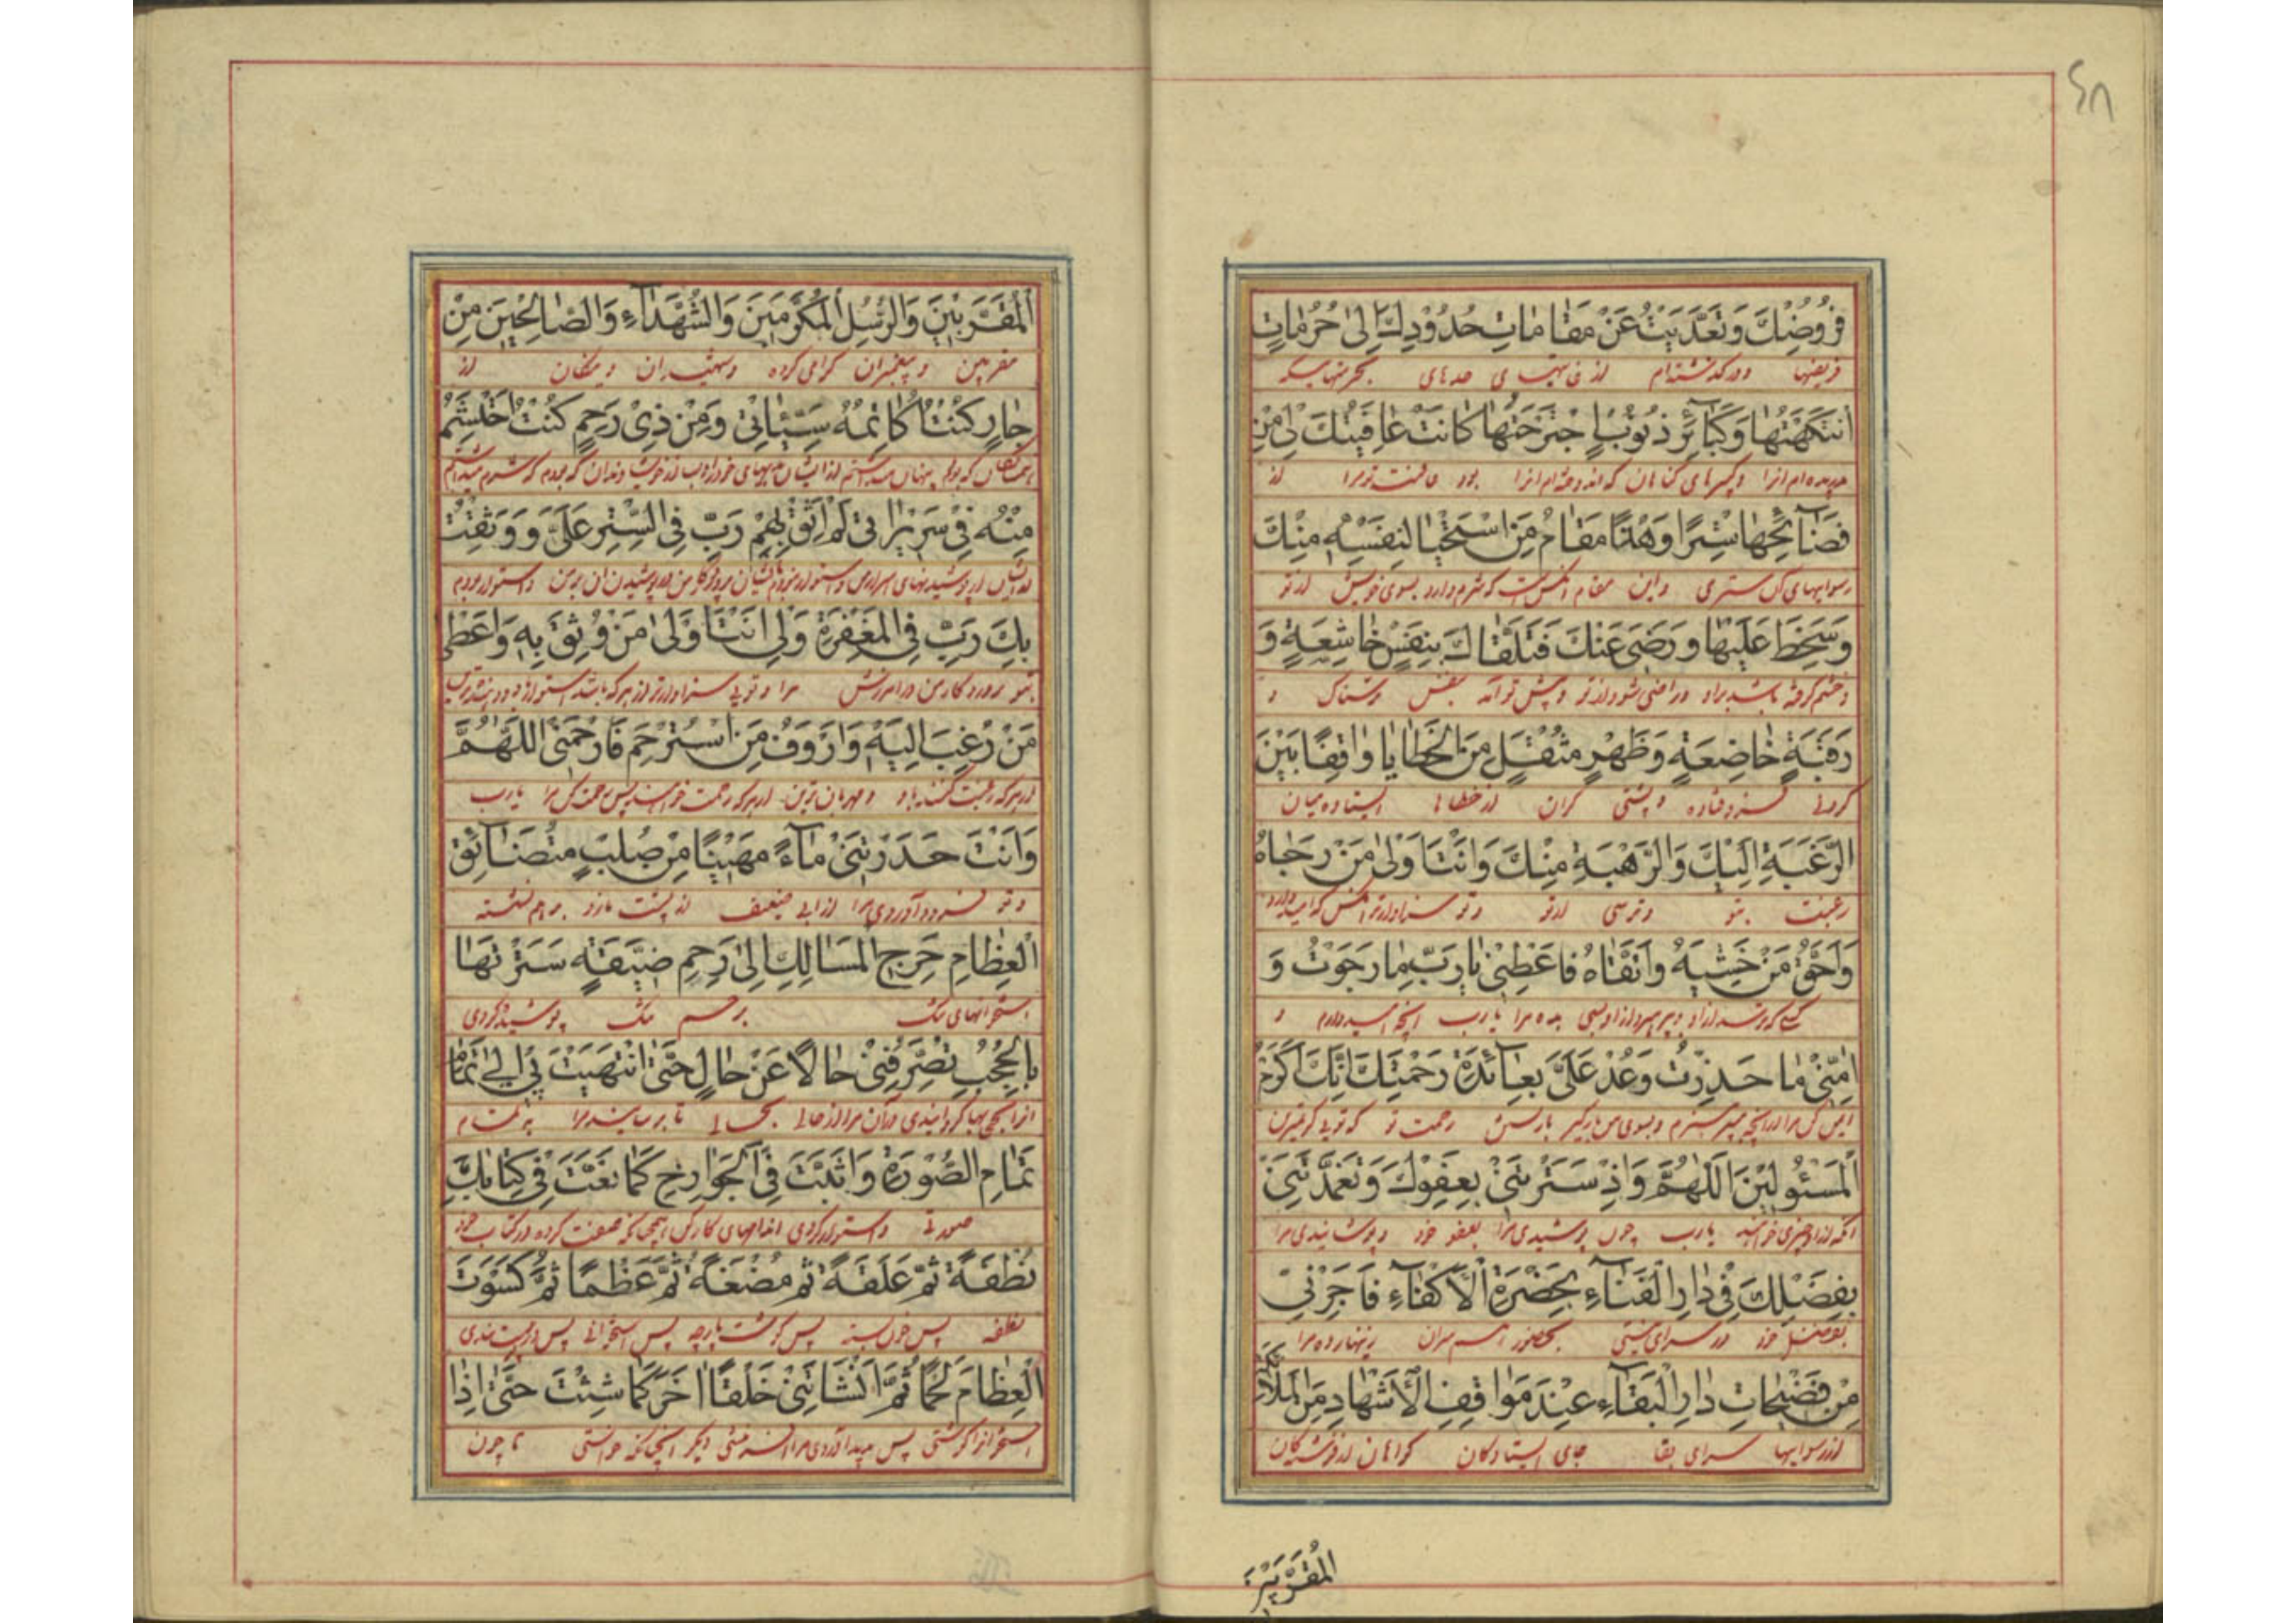 ۶۸
فُرُوضِكَ وَتَعَدَّيْتُ عَنْ مَقَامَاتِ حُدُودِكَ إِلَى حُرُمَاتٍ
فریضها و درگذشته‌ام از نهایتهای حدهای بحرمتهاییکه
انْتَهَكْتُهَا وَكَبَائِرِ ذُنُوبٍ اجْتَرَحْتُهَا كَانَتْ عَافِيَتُكَ لِي مِنْ
دریده‌ام انرا و کبیرهای گناهان که اندوخته‌ام انرا بود عافیت تو مرا از
فَضَائِحِهَا سِتْرًا وَهَذَا مَقَامُ مَنِ اسْتَحْيَا لِنَفْسِهِ مِنْكَ
رسواییهای آن ستری و این مقام آنکس است که شرم دارد بسوی خویش از تو
وَسَخِطَ عَلَيْهَا وَرَضِيَ عَنْكَ فَتَلَقَّاكَ بِنَفْسٍ خَاشِعَةٍ وَ
و خشم گرفته باشد بر او و راضی شود از تو و پیش تو آمد بنفس ترسناک و
رَقَبَةٍ خَاضِعَةٍ وَظَهْرٍ مُثْقَلٍ مِنَ الْخَطَايَا وَاقِفًا بَيْنَ
گردنی فروفتاده و پشتی گران از خطاها ایستاده میان
الرَّغْبَةِ إِلَيْكَ وَالرَّهْبَةِ مِنْكَ وَأَنْتَ أَوْلَى مَنْ رَجَاهُ
رغبت بتو و ترسی از تو و تو سزاوارتر آنکس که امید دارد
وَأَحَقُّ مَنْ خَشِيَهُ وَاتَّقَاهُ فَأَعْطِنِي يَا رَبِّ مَا رَجَوْتُ وَ
کسی که ترسد از او و پرهیزد از او پس بده مرا یا رب آنچه امید دارم و
آمِنِّي مَا حَذِرْتُ وَعُدْ عَلَيَّ بِعَائِدَةِ رَحْمَتِكَ إِنَّكَ أَكْرَمُ
ایمن کن مرا از آنچه میترسم و بسوی من بازگیر رحمت تو که تویی کریمترین
الْمَسْئُولِينَ اللَّهُمَّ وَإِذْ سَتَرْتَنِي بِعَفْوِكَ وَتَغَمَّدْتَنِي
آنکه از او چیزی خواهند یا رب چون پوشیدی مرا بعفو خود و پوشانیدی مرا
بِفَضْلِكَ فِي دَارِ الْفَنَاءِ بِحَضْرَةِ الْأَكْفَاءِ فَأَجِرْنِي
بفضل خود در سرای نیستی بحضور همسران زینهار ده مرا
مِنْ فَضِيحَاتِ دَارِ الْبَقَاءِ عِنْدَ مَوَاقِفِ الْأَشْهَادِ مِنَ الْمَلَائِكَةِ
از رسواییها سرای بقا جای ایستادگان گواهان از فرشتگان
الْمُقَرَّبِينَ
الْمُقَرَّبِينَ وَالرُّسُلِ الْمُكَرَّمِينَ وَالشُّهَدَاءِ وَالصَّالِحِينَ مِنْ
مقربین و پیغمبران گرامی کرده و شهیدان و نیکان از
جَارٍ كُنْتُ أُكَاتِمُهُ سَيِّئَاتِي وَمِنْ ذِي رَحِمٍ كُنْتُ أَحْتَشِمُ
مِنْهُ فِي سَرِيرَاتِي لَمْ أَثِقْ بِهِمْ رَبِّ فِي السِّتْرِ عَلَيَّ وَوَثِقْتُ
بِكَ رَبِّ فِي الْمَغْفِرَةِ لِي وَأَنْتَ أَوْلَى مَنْ وُثِقَ بِهِ وَأَعْطَى
بتو پروردگار من در آمرزش مرا و تویی سزاوارتر از هر که باشد
مَنْ رُغِبَ إِلَيْهِ وَأَرْؤَفُ مَنِ اسْتُرْحِمَ فَارْحَمْنِي اللَّهُمَّ
از هر که رغبت کنند باو و مهربان‌ترین از هر که رحمت خواهند پس رحمت کن مرا یا رب
وَأَنْتَ حَدَرْتَنِي مَاءً مَهِينًا مِنْ صُلْبٍ مُتَضَائِقِ
و تو فرود آوردی مرا از آبی ضعیف از پشت بهم نشسته
الْعِظَامِ حَرِجِ الْمَسَالِكِ إِلَى رَحِمٍ ضَيِّقَةٍ سَتَرْتَهَا
استخوانهای تنگ برحم تنگ پوشیده کردی
بِالْحُجُبِ تُصَرِّفُنِي حَالًا عَنْ حَالٍ حَتَّى انْتَهَيْتَ بِي إِلَى تَمَامِ
انرا بحجابها گردانیدی در آن مرا از حالی بحالی تا برسانیدی مرا به تمام
تَمَامِ الصُّورَةِ وَأَثْبَتَّ فِيَّ الْجَوَارِحَ كَمَا نَعَتَّ فِي كِتَابِكَ
صورتی و استوار کردی اندامهای کارکن همچنانکه صفت کرده در کتاب خود
نُطْفَةً ثُمَّ عَلَقَةً ثُمَّ مُضْغَةً ثُمَّ عَظْمًا ثُمَّ كَسَوْتَ
نطفه پس خون بسته پس گوشت پارچه پس استخوانی پس
الْعِظَامَ لَحْمًا ثُمَّ أَنْشَأْتَنِي خَلْقًا آخَرَ كَمَا شِئْتَ حَتَّى إِذَا
استخوانرا گوشتی پس پیدا آوردی مرا آفرینشی دیگر آنچنانکه خواستی تا چون